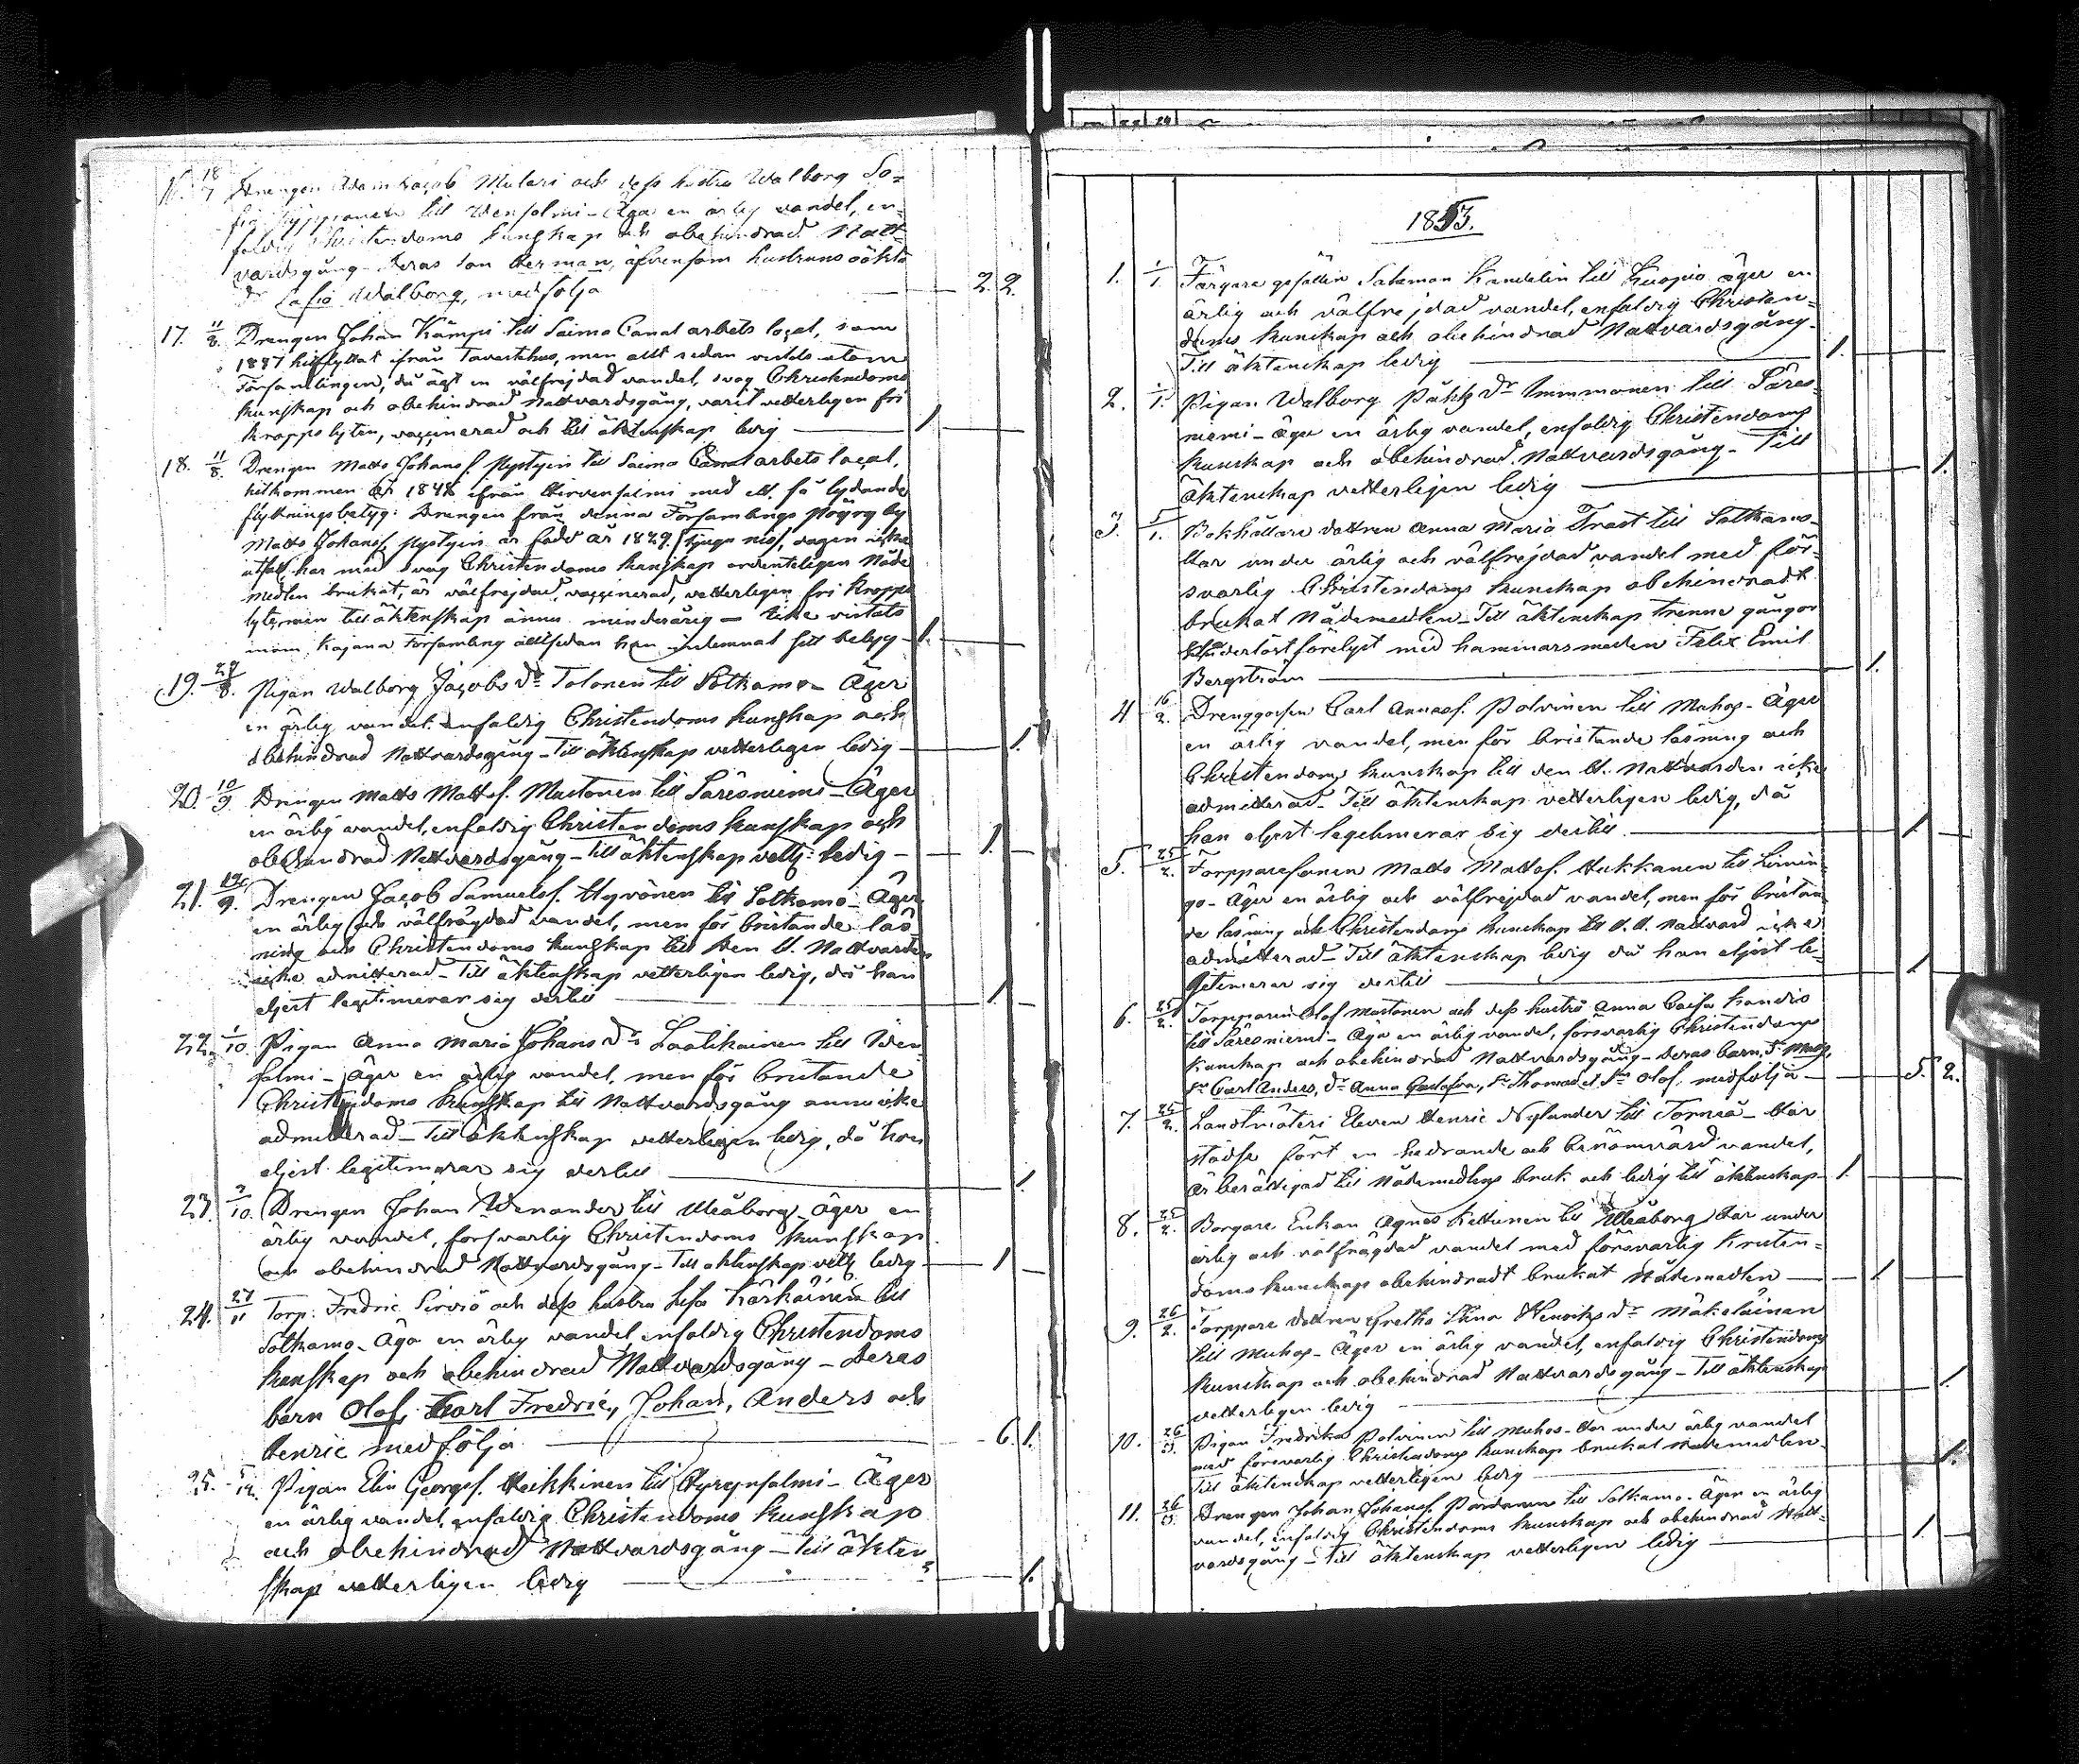 16. 18/7 Drengen Adam Jacob Mulari och dess hustru Walborg So=
fia till Idensalmi - Äga en ärlig vandel, en=
faldig Christendoms kunskap och obehindrad Natt=
vardsgång - Deras son Herman, äfvensom hustruns oäkta
Dr Cafia Walborg, medfölja 2. 2.
17. 11/8. Drengen Johan Kämpi till Saima Canal arbets local, som
1847 hitflyttat ifrån Tavastehus, men allt sedan vistats utom
Församlingen, då ägt en välfrejdad vandel, svag Christendoms
kunskap och obehindrad Nattvardsgång, varit vetterligen fri
kropps lyten, vaccinerad och till äktenskap ledig 1.
18. 11/8. Drengen Matts Johans s. Nystyin till Saima Canal arbets local,
hitkommen år 1848 ifrån Hirvensalmi med ett så lydande
flyttningsbetyg: Drengen från denna Församlings by
Matts Johans s. Nystyin är född år 1829 /tjugo nio/, dagen icke
utsatt, har med svag Christendoms kunskap ordenteligen Nåde
medlen brukat, är välfrejdad, vaccinerad, vetterligen fri kropps
lyte, men till äktenskap ännu minderårig - Icke vistats
inom Kajana Församling alltsedan han inlemnat sitt betyg - 1.
19. 29/8. Pigan Walborg Jacobs Dr Tolonen till Sotkamo - Äger
en ärlig vandel. enfaldig Christendoms kunskap och
obehindrad Nattvardsgång - Till äktenskap vetterligen ledig - 1.
20. 10/9. Drengen Matts Matts s. Mustonen till Säresniemi - Äger
en ärlig vandel, enfaldig Christendoms kunskap och
obehindrad Nattvardsgång - Till äktenskap vettz: ledig - 1.
21. 19/9. Drengen Jacob Samuels s. Hyvönen till Sotkamo - Äger
en ärlig och välfrägdad vandel, men för bristande läs
ning och Christendoms kunskap till den H. Nattvarden
icke admitterad - Till äktenskap vetterligen ledig, då han
eljest legitimerar sig dertill 1.
22. 1/10. Pigan Anna Maria Johans Dr Laatikainen till Iden=
salmi - Äger en ärlig vandel, men för bristande
Christendoms kunskap till Nattvardsgång ännu icke
admitterad - Till äktenskap vetterligen ledig, då hon
eljest legitimerar sig dertill 1.
23. 2/10. Drengen Johan Wenander till Uleåborg - Äger en
ärlig vandel, försvarlig Christendoms kunskap
och obehindrad Nattvardsgång - Till äktenskap vettz ledig - 1
24. 27/11 Torp. Fredric Sirviö och dess hustru Lisa Kärkäinen till
Sotkamo - Äga en ärlig vandel enfaldig Christendoms
kunskap och obehindrad Nattvardsgång - Deras
barn Olof, Karl Fredric, Johan, Anders och
Henric medfölja 6. 1.
25. 5/12. Pigan Elin Georgs s. Heikkinen till Hyrynsalmi - Äger
en ärlig vandel, enfaldig Christendoms kunskap
och obehindrad Nattvardsgång - Till äkten=
skap vetterligen ledig 1.
1853.
1. 1/1 Färgare gesällen Salomon Kandelin till Kuopio äger en
ärlig och välfrejdad vandel, enfaldig Christen=
doms kunskap och obehindrad Nattvardsgång.
Till äktenskap ledig 1.
2. 1/1. Pigan Walborg Påhls Dr Immmonen till Säres=
niemi - Äger en ärlig vandel, enfaldig Christendoms
kunskap och obehindrad Nattvardsgång - Till
äktenskap vetterligen ledig 1.
3. 5/1. Bokhållare dottren Anna Maria Trast till Sotkamo -
Har under ärlig och välfrejdad vandel med för=
svarlig Christendoms kunskap obehindradt
brukat Nådemedlen - Till äktenskap trenne gångor
förelyst med hammarsmeden Felix Emil
Bergström 1.
4 16/2. Drenggossen Carl Annas s. Polvinen till Muhos - Äger
en ärlig vandel, men för bristande läsning och
Christendoms kunskap till den H. Nattvarden icke
admitterad - Till äktenskap vetterligen ledig, då
han eljest legitimerar sig dertill 1
5. 25/2. Torpparesonen Matts Matts s. Hukkanen till Limin=
go - Äger en ärlig och välfrejdad vandel, men för bristan
de läsning och Christendoms kunskap till d. H. Nattvard icke
admitterad - Till äktenskap ledig då han eljest le=
gitimerar sig dertill 1
6. 25/2. Torpparen Olof Mustonen och dess hustru Anna Caisa
till Säresniemi - Äga en ärlig vandel, försvarlig Christendoms
kunskap och obehindrad Nattvardsgång - Deras barn, Sr Matts,
Sr Carl Anders, Dr Anna Gustafva, Sr Thomas et Sr Olof, medfölja - 5. 2.
7. 25/2. Landtmäteri Eleven Henric Nylander till Torneå - Har
städse fört en hedrande och berömvärd vandel,
är berättigad till Nådemedlens bruk och ledig till äktenskap 1.
8. 25/2. Borgare Enkan Agnes Kettunen till Uleåborg Har under
ärlig och välfrägdad vandel med försvarlig Kristen=
doms kunskap obehindradt brukat Nådemedlen 1
9. 26/2. Torppare dottren Gretha Stina Henriks Dr Mäkeläinen
till Muhos - Äger en ärlig vandel, enfaldig Christendoms
kunskap och obehindrad Nattvardsgång - Till äktenskap
vetterligen ledig 1.
10. 26/2. Pigan Fredrika Polvinen till Muhos - Har under ärlig vandel
med försvarlig Christendoms kunskap brukat Nådemedlen
Till äktenskap vetterligen ledig 1.
11. 26/2. Drengen Johan Johans s. till Sotkamo. Äger en ärlig
vandel, enfaldig Christendoms kunskap och obehindrad Natt=
vardsgång - Till äktenskap vetterligen ledig 1.